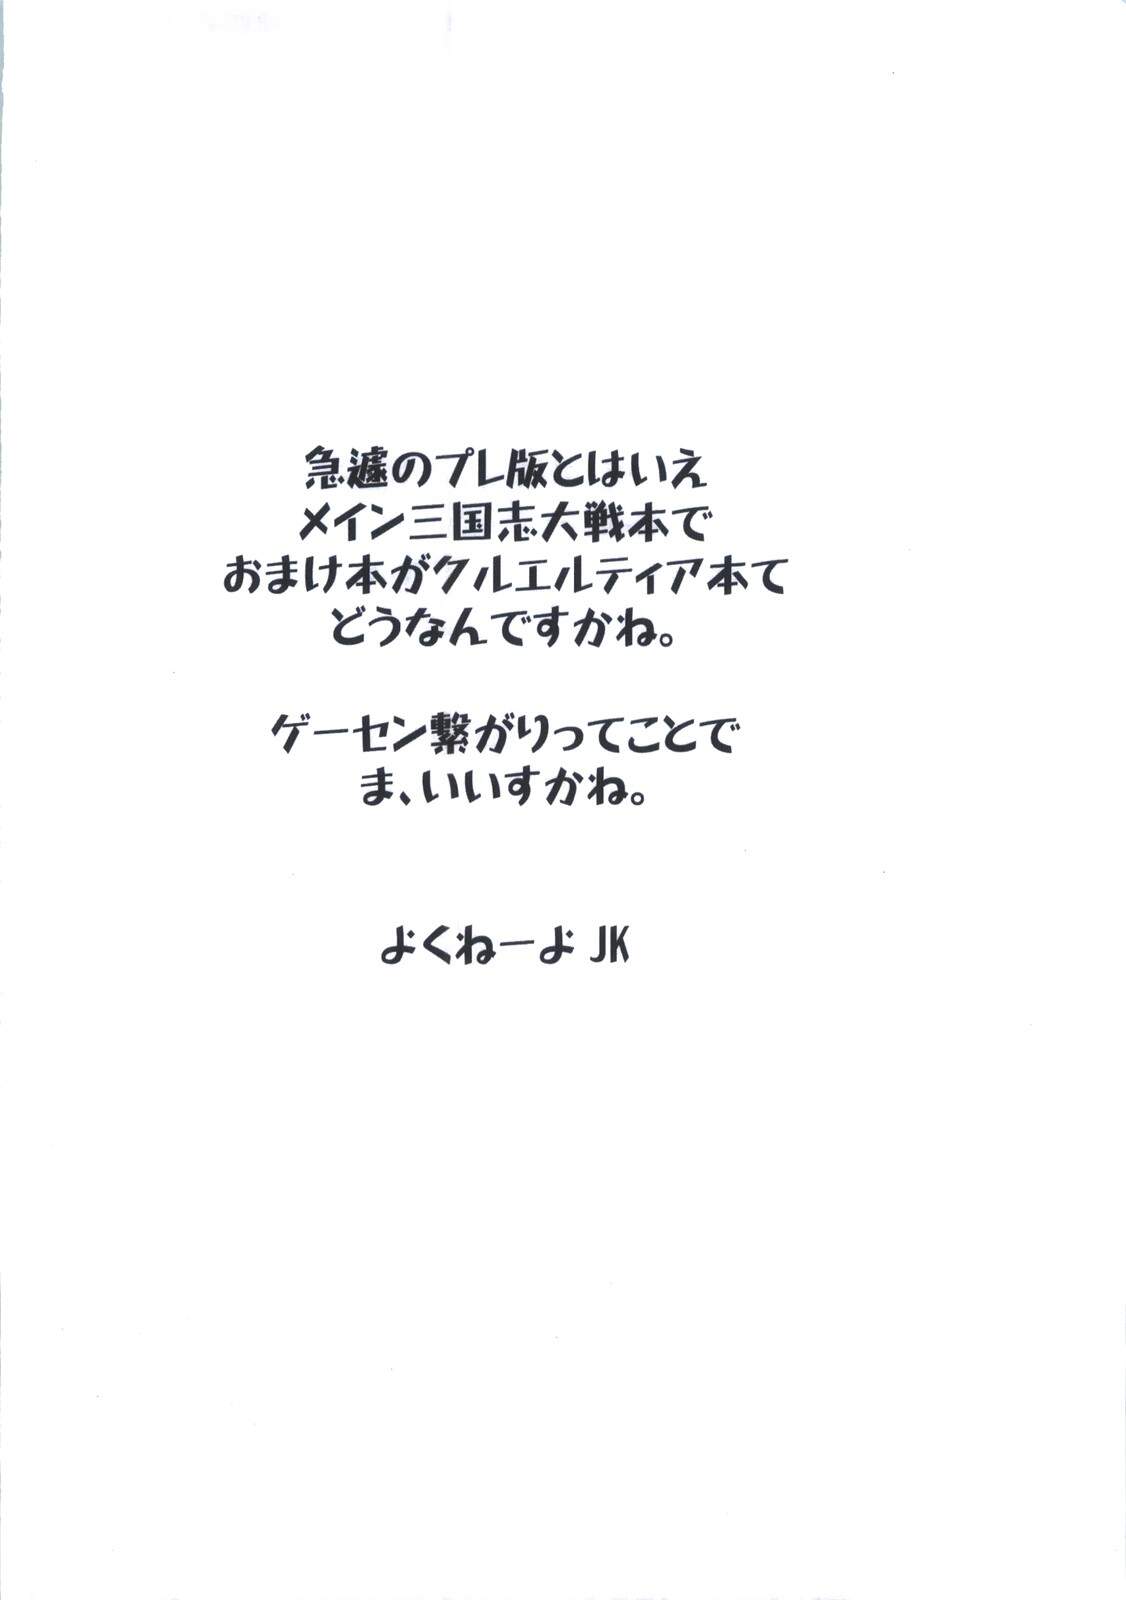 急遽のプレ版とはいえ
メイン三国志大戦本で
おまけ本がクルエルティア本て
どうなんですかね。
ゲーセン繋がりってことで
ま、いいすかね。
よくねーよ JK